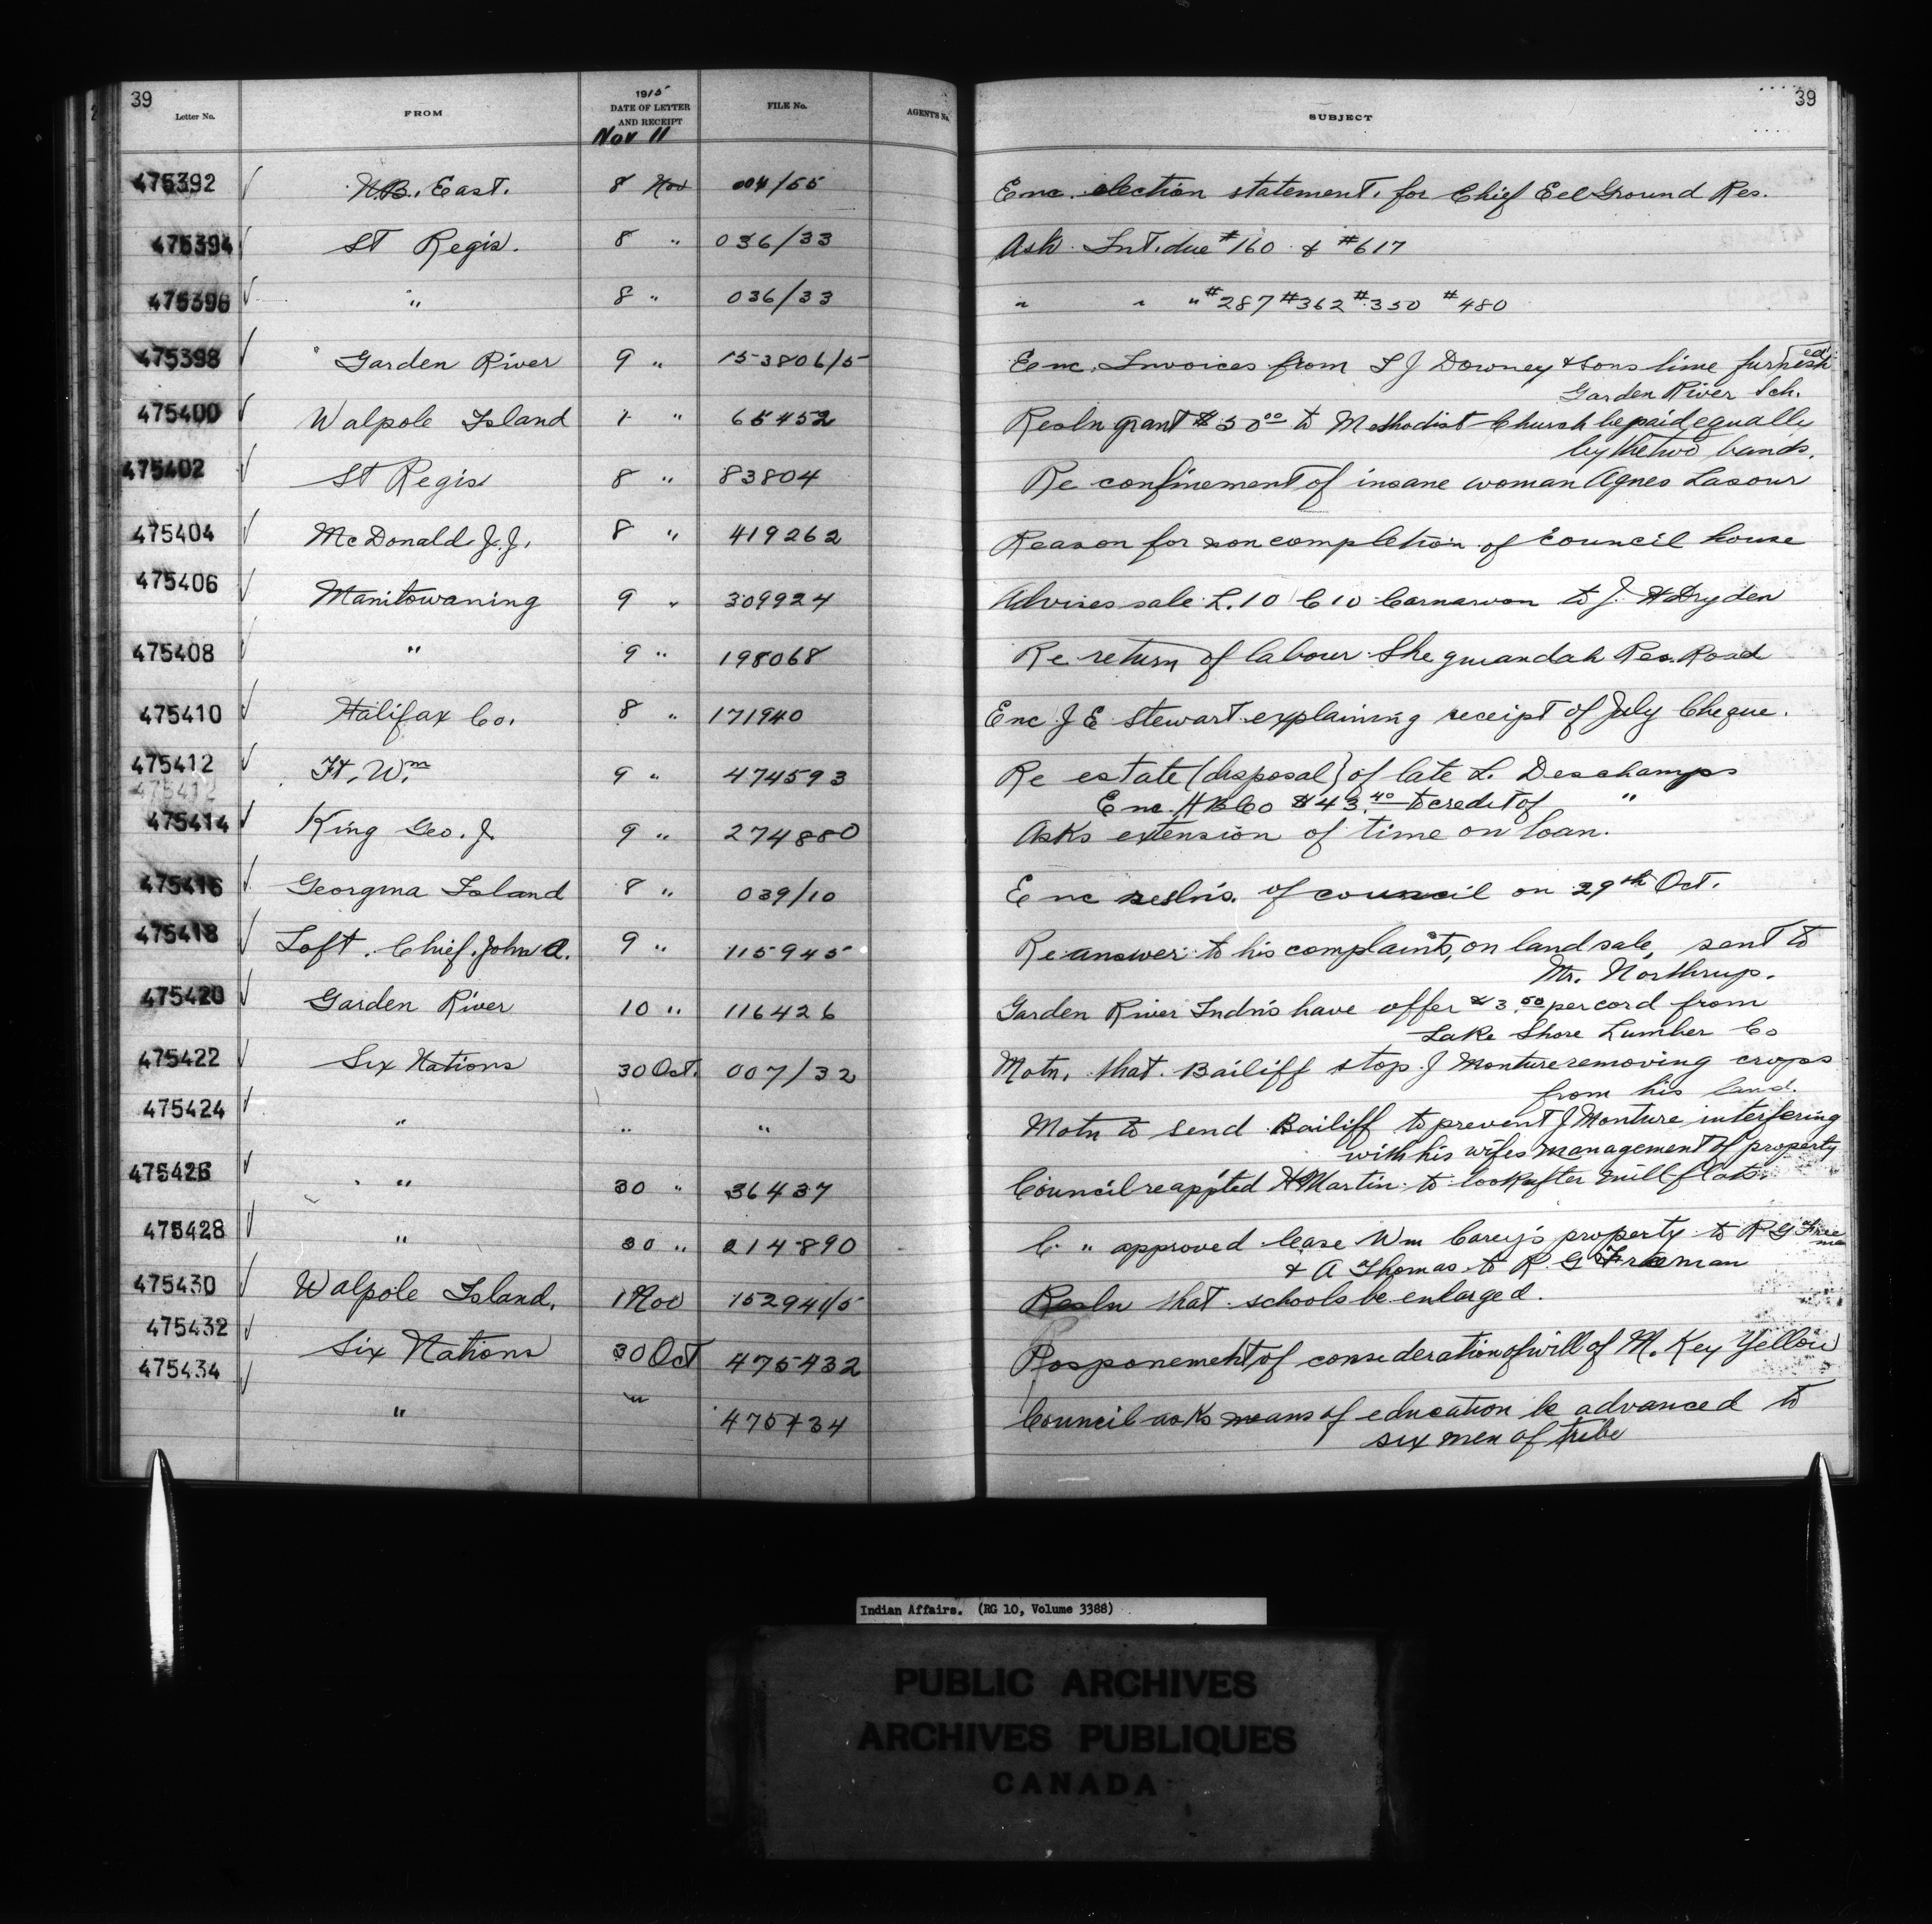 39
39
Letter No.
FROM
1915
DATE OF LETTER
AND RECEIPT
Nov 11
FILE No.
AGENT'S No.
SUBJECT
475392 N.B. East. 8 Nov 004/55 Enc. election statement. for Chief Eel Ground Res.
475394 St Regis. 8 " 036/33 Ask Int. due #160 & #617
475396 " 8 " 036/33 " " " #287 #362 #350 #480
475398 Garden River 9 " 153806/5 Enc. Invoices from T J Downey & Sons lime furnished
Garden River Sch.
475400 Walpole Island 1 " 65452 Resln grant $50 00 to Methodist Church be paid equally
by the two bands.
475402 St Regis 8 " 83804 Re confinement of insane woman Agnes Lasour
475404 McDonald J.J. 8 " 419262 Reason for non completion of council house
475406 Manitowaning 9 " 309924 Advises sale L.10 C 10 Carnarvon to J. H Dryden
475408 " 9 " 198068 Re return of labour Sheguiandah Res. Road
475410 Halifax Co. 8 " 171940 Enc J E Stewart explaining receipt of July Cheque.
475412 Ft. Wm 9 " 474593 Re estate (disposal) of late L. Deschamps
Enc. H B Co $43.40 to credit of "
475414 King Geo. J 9 " 274880 Asks extension of time on loan.
475416 Georgina Island 8 " 039/10 Enc reslns. of council on 29th Oct.
475418 Loft. Chief. John A. 9 " 115945 Re answer to his complaints, on land sale, sent to
Mr. Northrup.
475420 Garden River 10 " 116426 Garden River Indns have offer $3.50 per cord from
Lake Shore Lumber Co
475422 Six Nations 30 Oct. 007/32 Motn. that Bailiff stop J Monture removing crops
from his land.
475424 " " " Motn to send Bailiff to prevent J Monture interfering
with his wifes management of property
475426 " 30 " 36437 Council reappted H Martin to look after mill flats.
475428 " 30 " 214890 C. " approved lease Wm Carey's property to R G Freeman
& A Thomas to R. G Freeman
475430 Walpole Island. 1 Nov 152941/5 Resln that schools be enlarged.
475432 Six Nations 30 Oct 475432 Posponement of consideration of will of M. Key Yellow
475434 " " 475434 Council asks means of education be advanced to
six men of tribe
Indian Affairs. (RG 10, Volume 3388)
PUBLIC ARCHIVES
ARCHIVES PUBLIQUES
CANADA